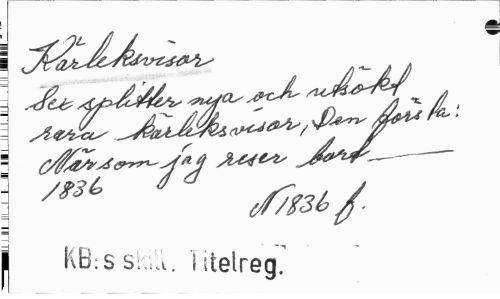 Kärleksvisor
Sex splitter nya och utsökt
rara kärleksvisor, Den första:
Når som jag reser bort —
1836
N 1836 f.
KB:s skill. Titelreg.